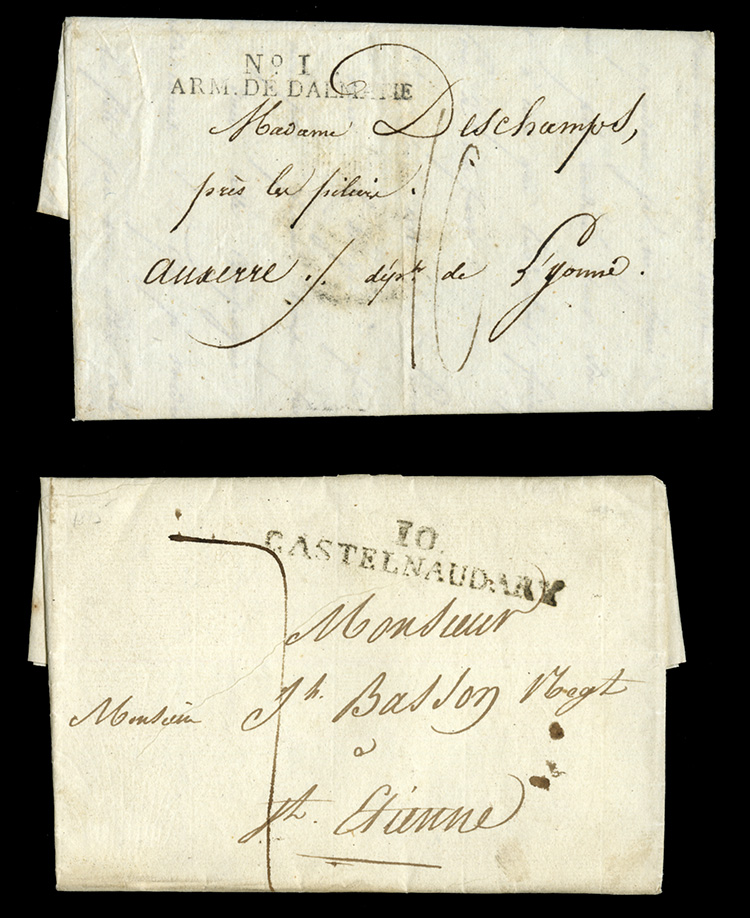 No I
ARM. DE DALMATIE
Madame Deschamps,
près les piliers.
auxerre ./. dépt de L'yonne.
16
10
CASTELNAUDARY
7
Monsieur
Monsieur
Jh. Basson Negt
a
St. Etienne